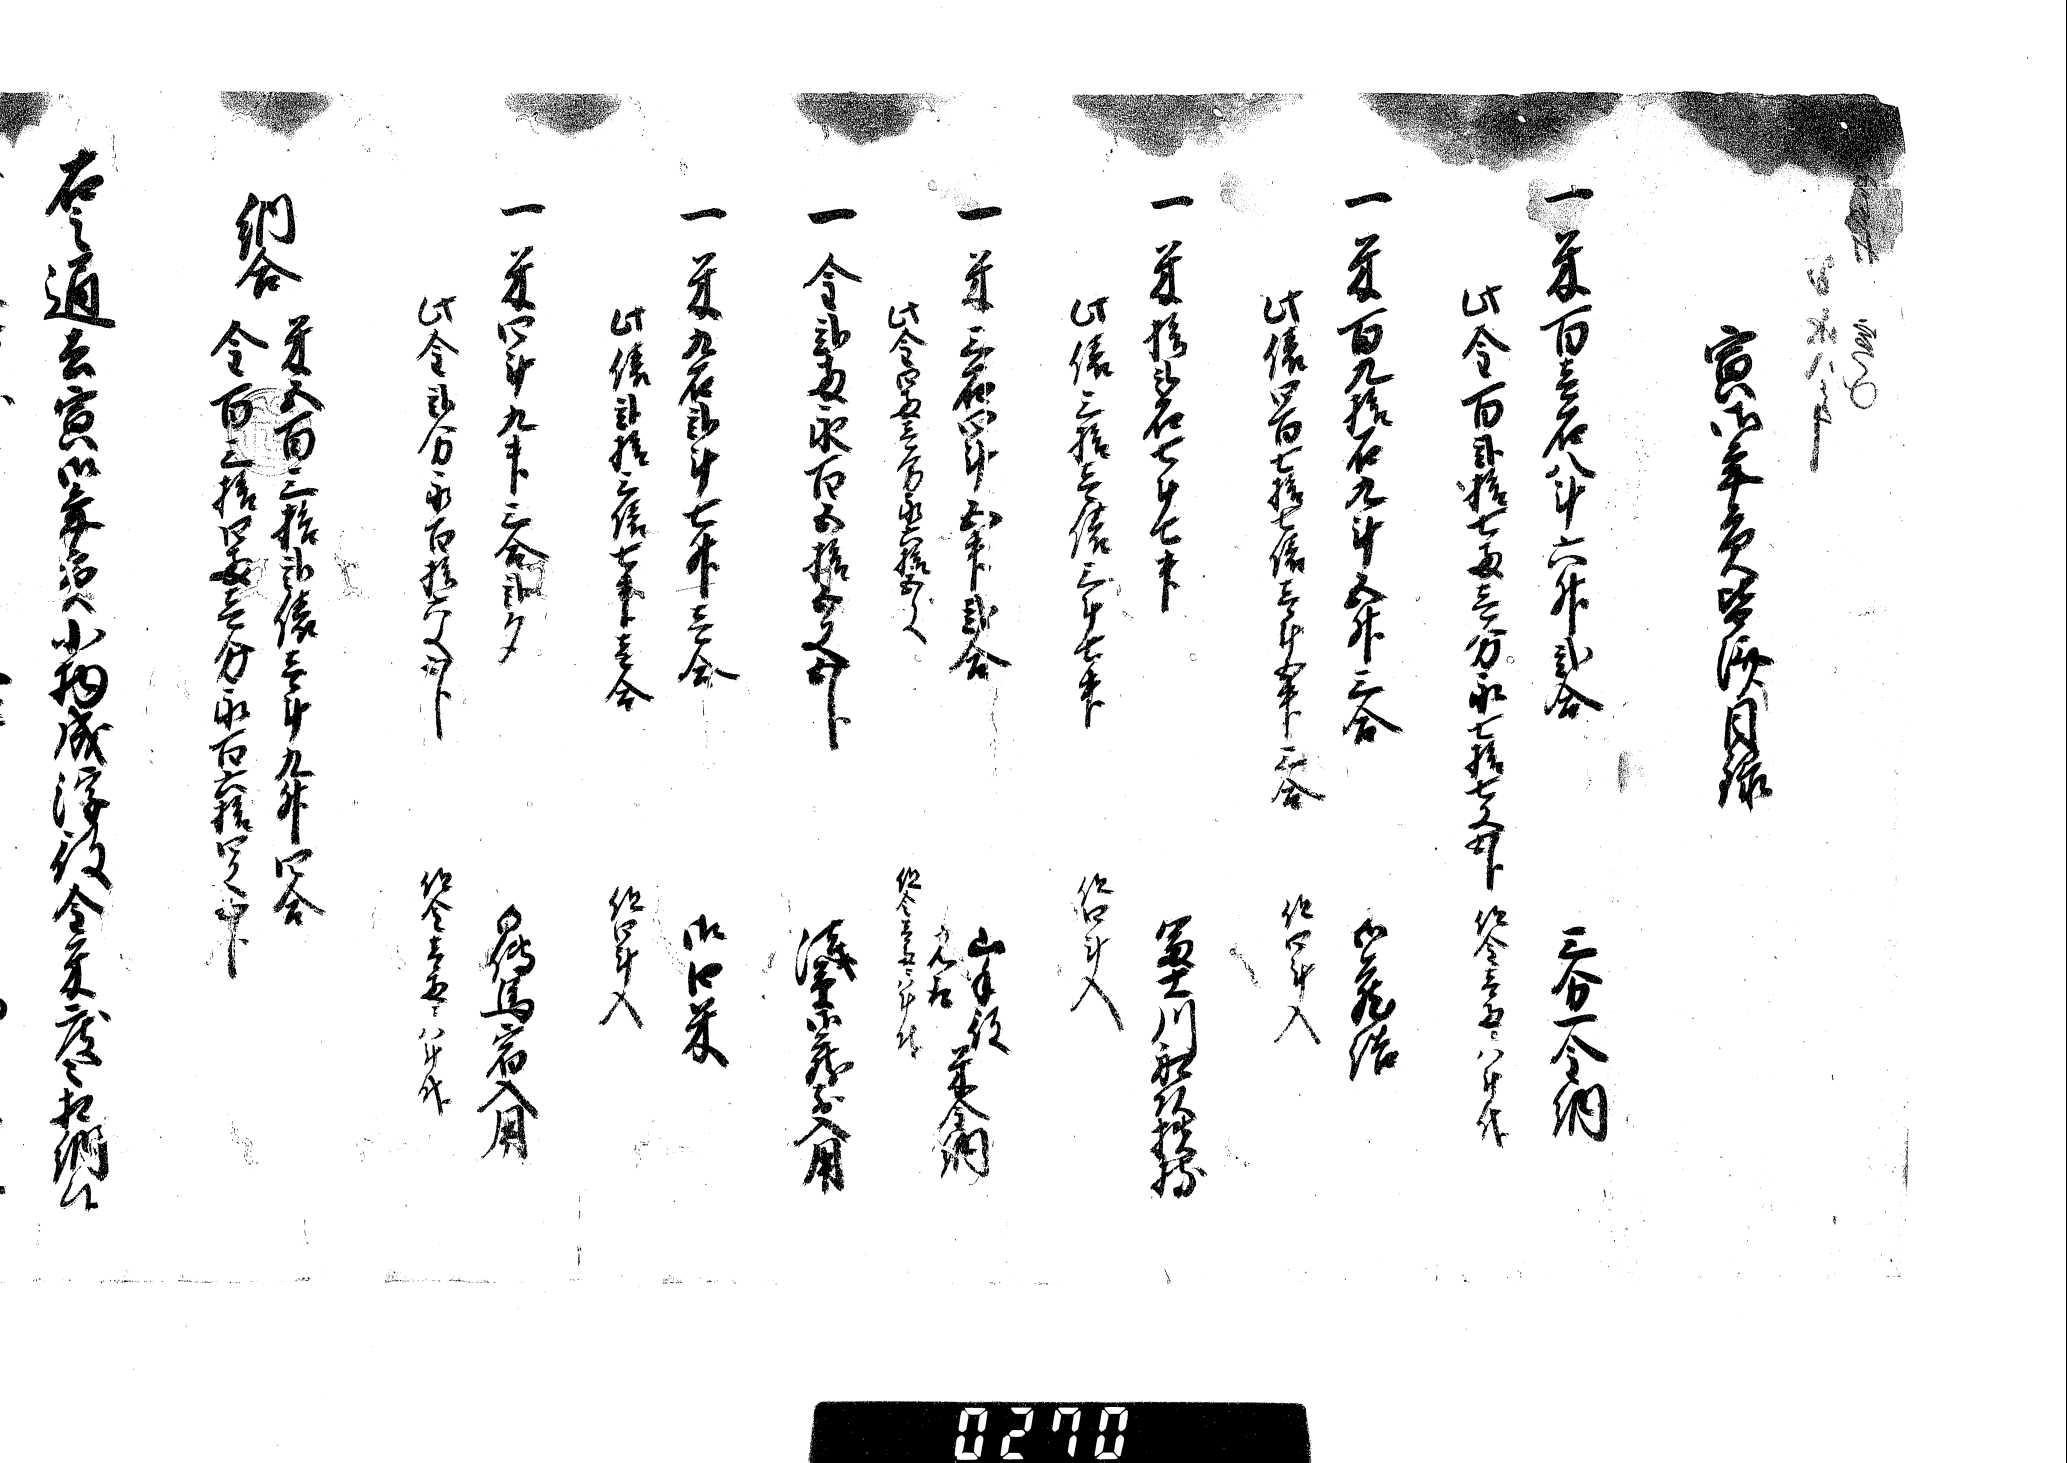 寅御年貢皆済目録
一 米百壱石八斗六升弐合 三分一金納
此金百弐拾七両壱分永七拾七文五分 但金壱両ニ八斗代
一 米百九拾石九斗五升三合 御蔵詰
此俵四百七拾七俵壱斗五升三合 但四斗入
一 米拾弐石七斗七升 富士川船頭扶持
此俵三拾壱俵三斗七升 但四斗入
一 米三石四斗五升弐合 山手役米金納
此金四両壱分永六拾五文 但金壱両ニ八斗代
一 金弐両永百五拾五文五分 浅草御蔵前入用
一 米九石弐斗七升壱合 御口米
此俵弐拾三俵七升壱合 但四斗入
一 米四斗九升三合弐夕 御伝馬宿入用
此金弐分永百拾六文五分 但金壱両ニ八斗代
納合
米五百三拾弐俵壱斗九升四合
金百三拾四両壱分永百六拾四文
右之通去寅御年貢小物成浮役金米度々相納候
0270